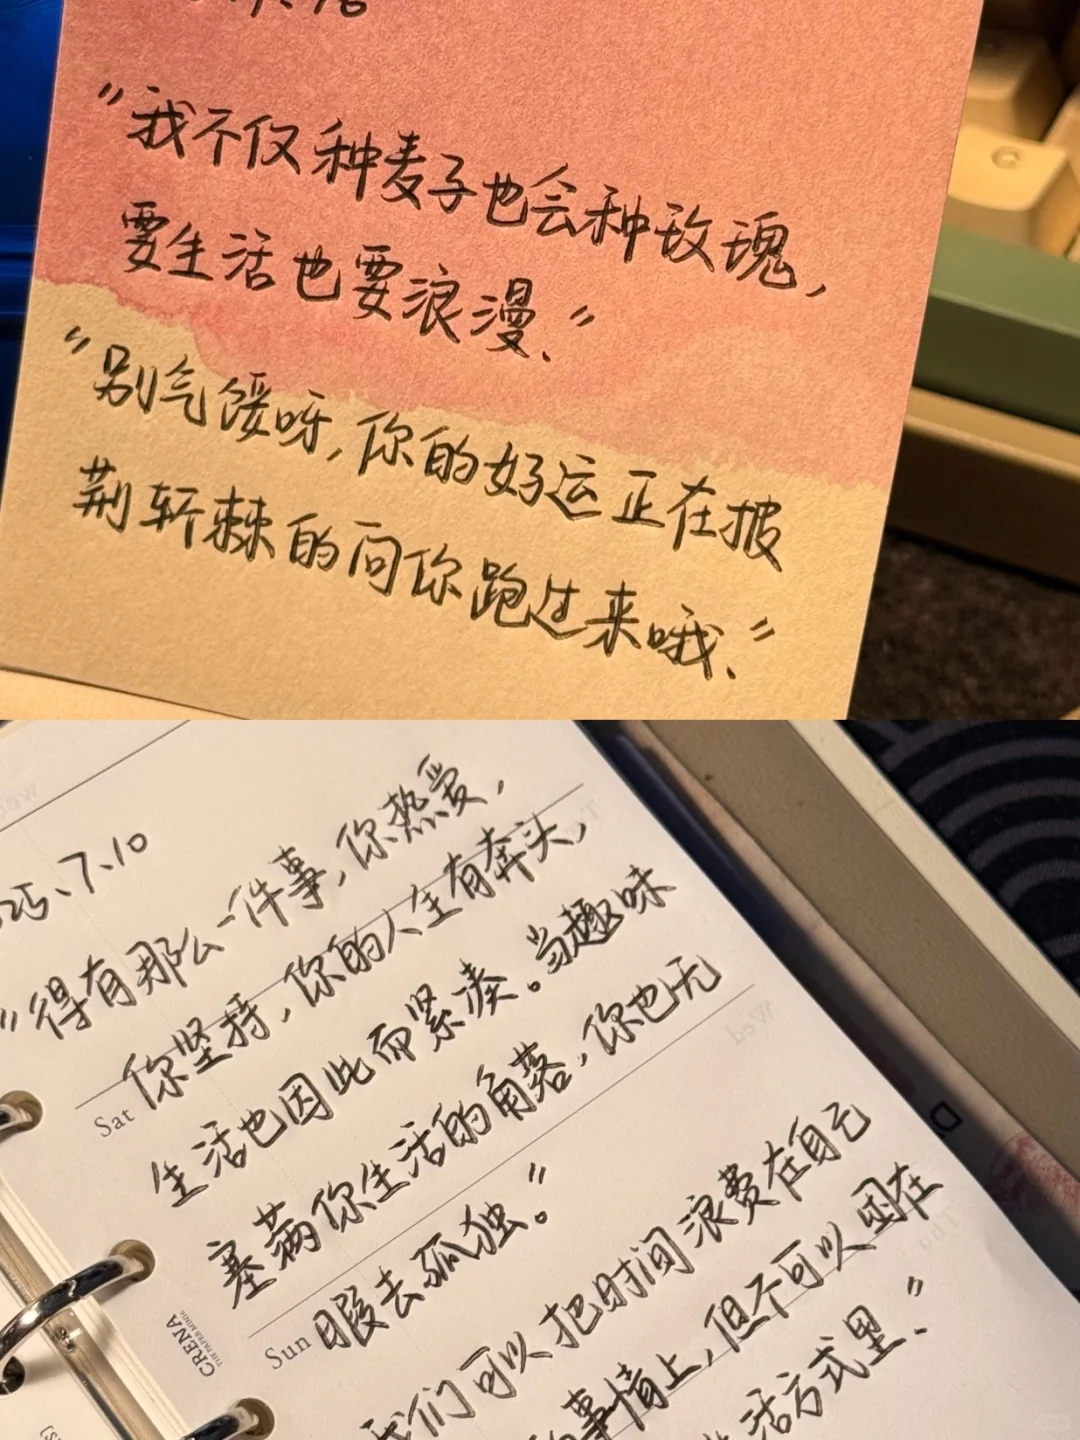 "我不仅种麦子也会种玫瑰,
要生活也要浪漫、"
"别气馁呀,你的好运正在披
荆斩棘的向你跑过来哦、"
25、7、10
"得有那么一件事,你热爱,
你坚持,你的人生有奔头,
生活也因此而紧凑。当趣味
塞满你生活的角落,你也无
暇去孤独。"
我们可以把时间浪费在自己
的事情上,但不可以困在
生活方式里、"
Sat
Sun
CRENA
THE PAPER MINIS
Wed
D
C